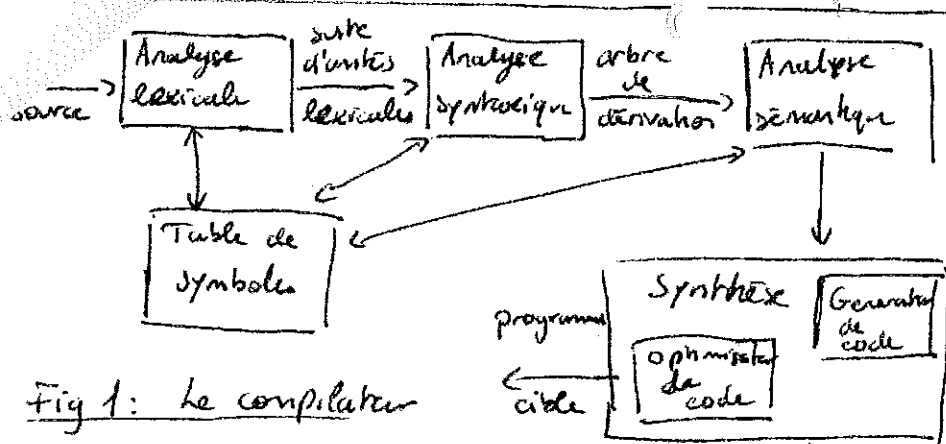 source
Analyse
lexicale
suite
d'unités
lexicales
Analyse
syntaxique
arbre
de
dérivation
Analyse
sémantique
Table de
symboles
Synthèse
Generation
de
code
optimisation
de
code
programme
cible
Fig 1: Le compilateur